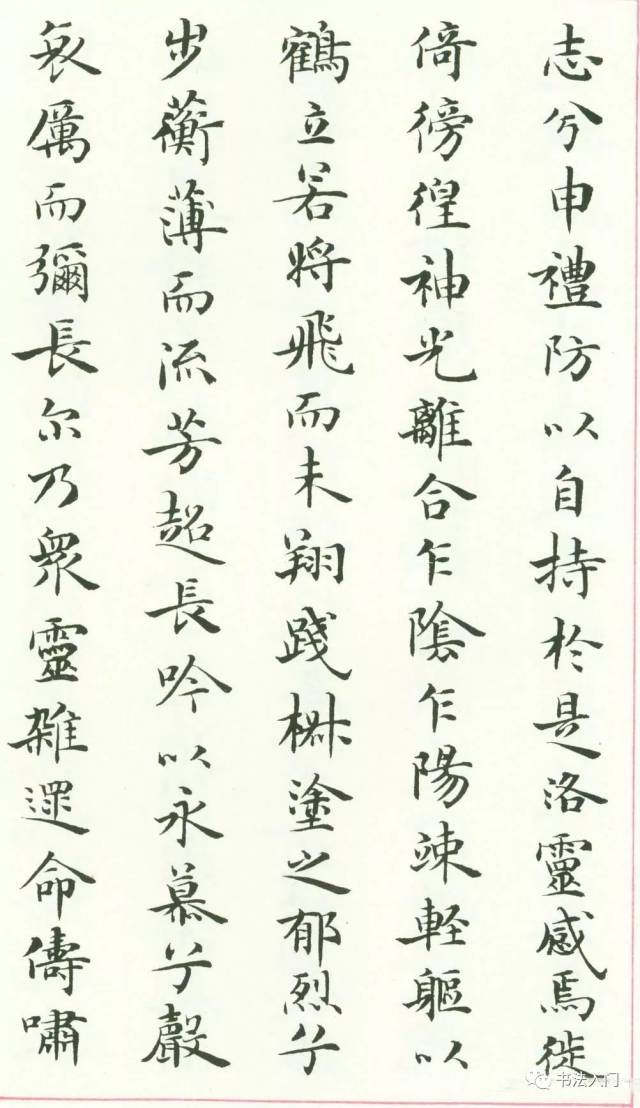 志兮申禮防以自持於是洛靈感焉徙
倚徬徨神光離合乍陰乍陽竦軽軀以
鶴立若将飛而未翔踐椒塗之郁烈兮
步蘅薄而流芳超長吟以永慕兮聲
哀厲而彌長尔乃衆靈雜遝命儔嘯
书法入门